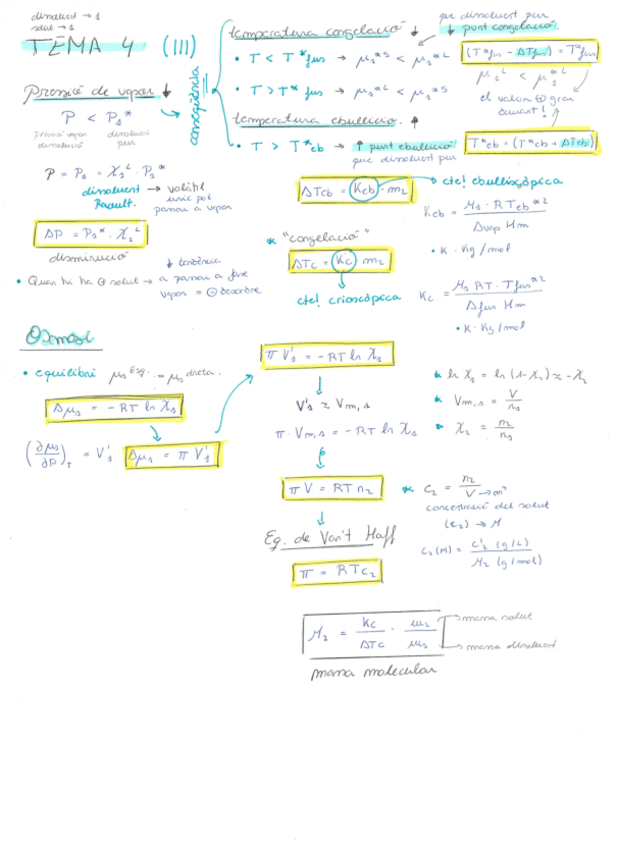 dissolvent → 1
solut → 1
TEMA 4 (III)
Pressió de vapor ↓
P < P₁*
pressió vapor dissolució
dissolvent pur
P = P₁ = χ₁ᴸ · P₁*
dissolvent → volàtil
Raoult.
únic pot passar a vapor
ΔP = P₁* · χ₂ᴸ
disminució
• Quan hi ha ⊕ solut → ↓ tendència
a passar a fase
vapor = ⊖ desordre
conseqüència
temperatura congelació ↓
• T < T*fus → μ₁*ˢ < μ₁*ᴸ
• T > T*fus → μ₁*ᴸ < μ₁*ˢ
que dissolvent pur
↓ punt congelació
(T*fus - ΔTfus) = Tfus
μ₁ᴸ < μ₁*ᴸ
el valor ⊕ gran
davant!
temperatura ebullició. ↑
• T > T*eb → ↑ punt ebullició
que dissolvent pur
T*eb = (T*eb + ΔTeb)
ΔTeb = Keb · m₂
cte! ebullioscòpica
Keb = M₁ · R Teb*² / Δvap Hm
• K · Kg/mol
* "congelació"
ΔTc = Kc · m₂
cte! crioscòpica
Kc = M₁ RT · Tfus*² / Δfus Hm
• K · Kg/mol
Osmosi
• equilibri μ₁ Esq. = μ₁ dreta.
Δμ₁ = -RT ln χ₁
(∂μ₁/∂P)T = V'₁
Δμ₁ = π V'₁
π V'₁ = -RT ln χ₁
↓
V'₁ ≈ Vm,1
π · Vm,1 = -RT ln χ₁
π V = RT n₂
↓
Eq. de Van't Hoff
π = RTc₂
* ln χ₁ = ln (1-χ₂) ≈ -χ₂
* Vm,1 = V/n₁
* χ₂ = n₂/n₁
* c₂ = n₂/V → m³
concentració del solut
(c₂) → M
c₂(M) = c'₂ (g/L) / M₂ (g/mol)
M₂ = Kc/ΔTc · m₂/m₁
massa solut
massa dissolvent
massa molecular